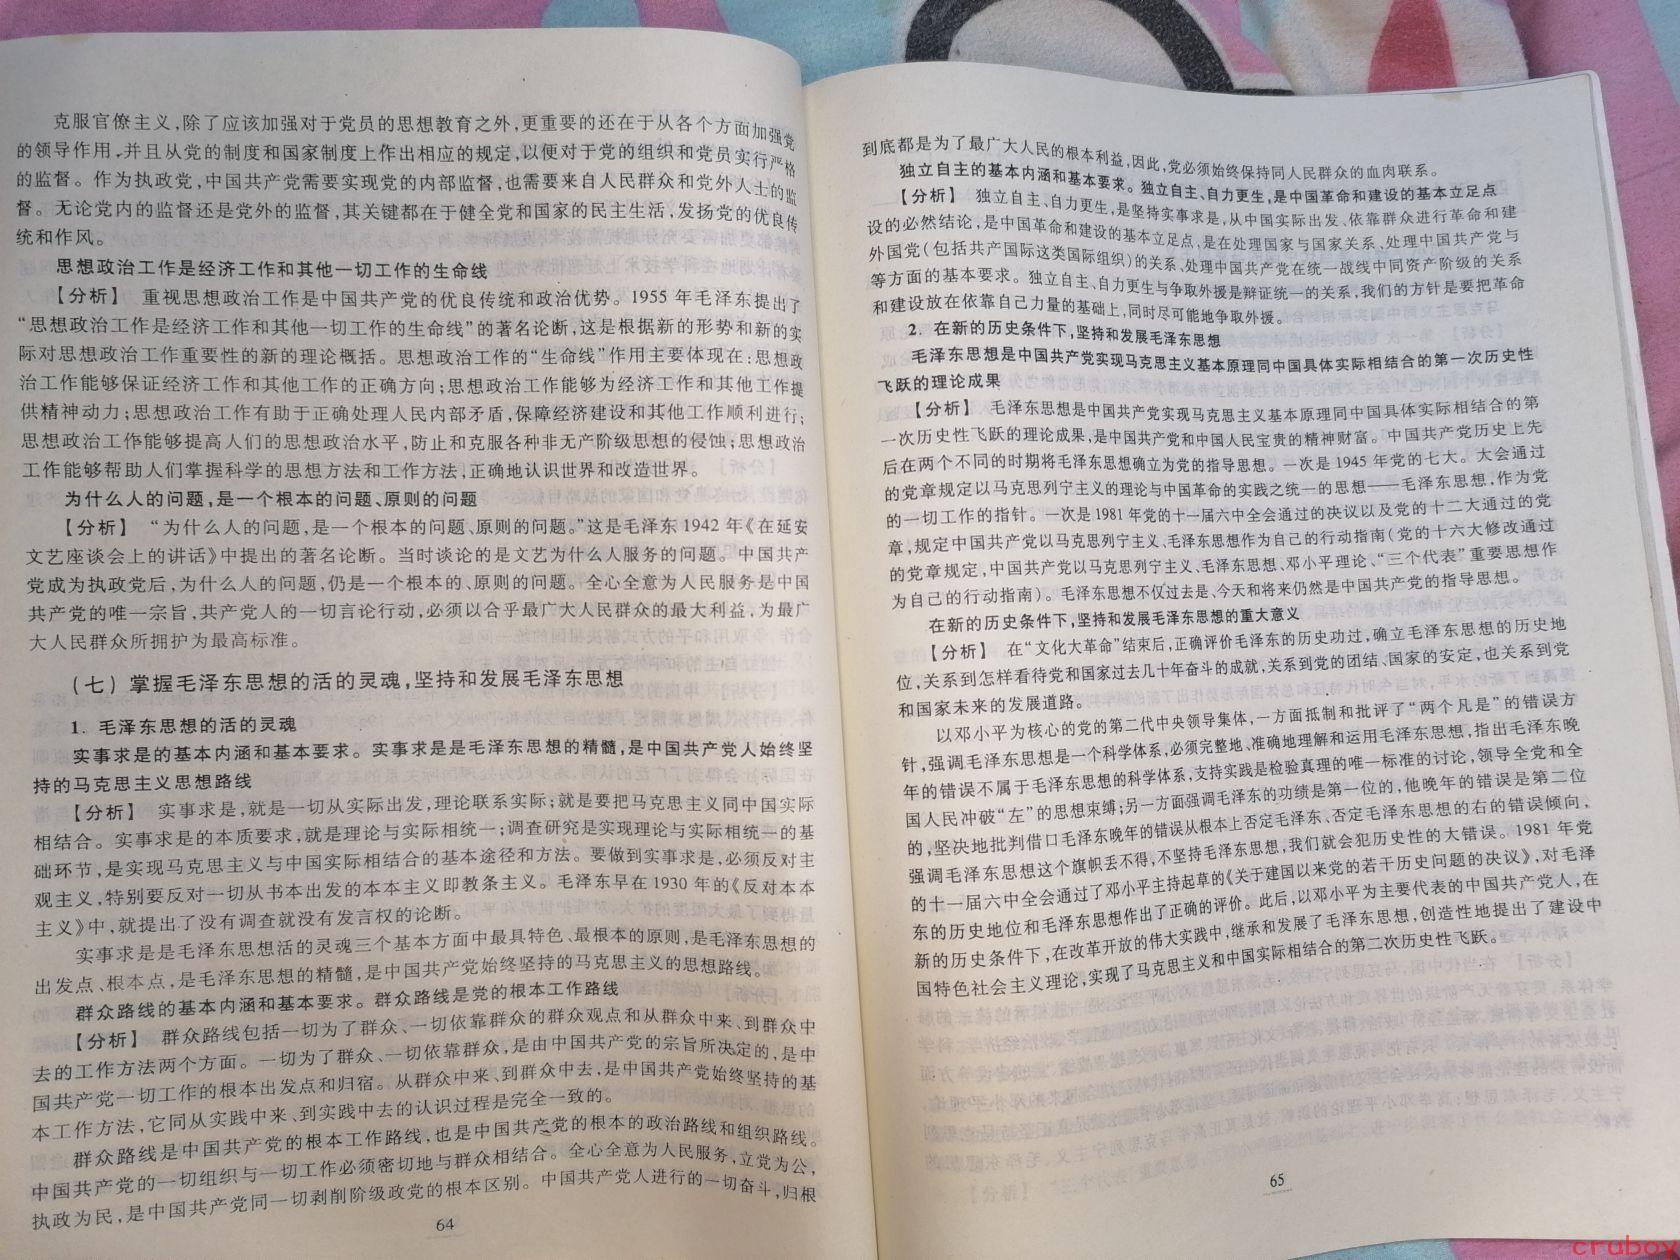 克服官僚主义,除了应该加强对于党员的思想教育之外,更重要的还在于从各个方面加强党
的领导作用,并且从党的制度和国家制度上作出相应的规定,以便对于党的组织和党员实行严格
的监督。作为执政党,中国共产党需要实现党的内部监督,也需要来自人民群众和党外人士的监
督。无论党内的监督还是党外的监督,其关键都在于健全党和国家的民主生活,发扬党的优良传
统和作风。
思想政治工作是经济工作和其他一切工作的生命线
【分析】 重视思想政治工作是中国共产党的优良传统和政治优势。1955 年毛泽东提出了
“思想政治工作是经济工作和其他一切工作的生命线”的著名论断,这是根据新的形势和新的实
际对思想政治工作重要性的新的理论概括。思想政治工作的“生命线”作用主要体现在:思想政
治工作能够保证经济工作和其他工作的正确方向;思想政治工作能够为经济工作和其他工作提
供精神动力;思想政治工作有助于正确处理人民内部矛盾,保障经济建设和其他工作顺利进行;
思想政治工作能够提高人们的思想政治水平,防止和克服各种非无产阶级思想的侵蚀;思想政治
工作能够帮助人们掌握科学的思想方法和工作方法,正确地认识世界和改造世界。
为什么人的问题,是一个根本的问题、原则的问题
【分析】 “为什么人的问题,是一个根本的问题、原则的问题。”这是毛泽东 1942 年《在延安
文艺座谈会上的讲话》中提出的著名论断。当时谈论的是文艺为什么人服务的问题。中国共产
党成为执政党后,为什么人的问题,仍是一个根本的、原则的问题。全心全意为人民服务是中国
共产党的唯一宗旨,共产党人的一切言论行动,必须以合乎最广大人民群众的最大利益,为最广
大人民群众所拥护为最高标准。
(七)掌握毛泽东思想的活的灵魂,坚持和发展毛泽东思想
1. 毛泽东思想的活的灵魂
实事求是的基本内涵和基本要求。实事求是是毛泽东思想的精髓,是中国共产党人始终坚
持的马克思主义思想路线
【分析】 实事求是,就是一切从实际出发,理论联系实际;就是要把马克思主义同中国实际
相结合。实事求是的本质要求,就是理论与实际相统一;调查研究是实现理论与实际相统一的基
础环节,是实现马克思主义与中国实际相结合的基本途径和方法。要做到实事求是,必须反对主
观主义,特别要反对一切从书本出发的本本主义即教条主义。毛泽东早在 1930 年的《反对本本
主义》中,就提出了没有调查就没有发言权的论断。
实事求是是毛泽东思想活的灵魂三个基本方面中最具特色、最根本的原则,是毛泽东思想的
出发点、根本点,是毛泽东思想的精髓,是中国共产党始终坚持的马克思主义的思想路线。
群众路线的基本内涵和基本要求。群众路线是党的根本工作路线
【分析】 群众路线包括一切为了群众、一切依靠群众的群众观点和从群众中来、到群众中
去的工作方法两个方面。一切为了群众、一切依靠群众,是由中国共产党的宗旨所决定的,是中
国共产党一切工作的根本出发点和归宿。从群众中来、到群众中去,是中国共产党始终坚持的基
本工作方法,它同从实践中来、到实践中去的认识过程是完全一致的。
群众路线是中国共产党的根本工作路线,也是中国共产党的根本的政治路线和组织路线。
中国共产党的一切组织与一切工作必须密切地与群众相结合。全心全意为人民服务,立党为公,
执政为民,是中国共产党同一切剥削阶级政党的根本区别。中国共产党人进行的一切奋斗,归根
64
到底都是为了最广大人民的根本利益,因此,党必须始终保持同人民群众的血肉联系。
独立自主的基本内涵和基本要求。独立自主、自力更生,是中国革命和建设的基本立足点
【分析】 独立自主、自力更生,是坚持实事求是,从中国实际出发、依靠群众进行革命和建
设的必然结论,是中国革命和建设的基本立足点,是在处理国家与国家关系、处理中国共产党与
外国党(包括共产国际这类国际组织)的关系、处理中国共产党在统一战线中同资产阶级的关系
等方面的基本要求。独立自主、自力更生与争取外援是辩证统一的关系,我们的方针是要把革命
和建设放在依靠自己力量的基础上,同时尽可能地争取外援。
2. 在新的历史条件下,坚持和发展毛泽东思想
毛泽东思想是中国共产党实现马克思主义基本原理同中国具体实际相结合的第一次历史性
飞跃的理论成果
【分析】 毛泽东思想是中国共产党实现马克思主义基本原理同中国具体实际相结合的第
一次历史性飞跃的理论成果,是中国共产党和中国人民宝贵的精神财富。中国共产党历史上先
后在两个不同的时期将毛泽东思想确立为党的指导思想。一次是 1945 年党的七大。大会通过
的党章规定以马克思列宁主义的理论与中国革命的实践之统一的思想——毛泽东思想,作为党
的一切工作的指针。一次是 1981 年党的十一届六中全会通过的决议以及党的十二大通过的党
章,规定中国共产党以马克思列宁主义、毛泽东思想作为自己的行动指南(党的十六大修改通过
的党章规定,中国共产党以马克思列宁主义、毛泽东思想、邓小平理论、“三个代表”重要思想作
为自己的行动指南)。毛泽东思想不仅过去是、今天和将来仍然是中国共产党的指导思想。
在新的历史条件下,坚持和发展毛泽东思想的重大意义
【分析】 在“文化大革命”结束后,正确评价毛泽东的历史功过,确立毛泽东思想的历史地
位,关系到怎样看待党和国家过去几十年奋斗的成就,关系到党的团结、国家的安定,也关系到党
和国家未来的发展道路。
以邓小平为核心的党的第二代中央领导集体,一方面抵制和批评了“两个凡是”的错误方
针,强调毛泽东思想是一个科学体系,必须完整地、准确地理解和运用毛泽东思想,指出毛泽东晚
年的错误不属于毛泽东思想的科学体系,支持实践是检验真理的唯一标准的讨论,领导全党和全
国人民冲破“左”的思想束缚;另一方面强调毛泽东的功绩是第一位的,他晚年的错误是第二位
的,坚决地批判借口毛泽东晚年的错误从根本上否定毛泽东、否定毛泽东思想的右的错误倾向,
强调毛泽东思想这个旗帜丢不得,不坚持毛泽东思想,我们就会犯历史性的大错误。1981 年党
的十一届六中全会通过了邓小平主持起草的《关于建国以来党的若干历史问题的决议》,对毛泽
东的历史地位和毛泽东思想作出了正确的评价。此后,以邓小平为主要代表的中国共产党人,在
新的历史条件下,在改革开放的伟大实践中,继承和发展了毛泽东思想,创造性地提出了建设中
国特色社会主义理论,实现了马克思主义和中国实际相结合的第二次历史性飞跃。
65
cruboy